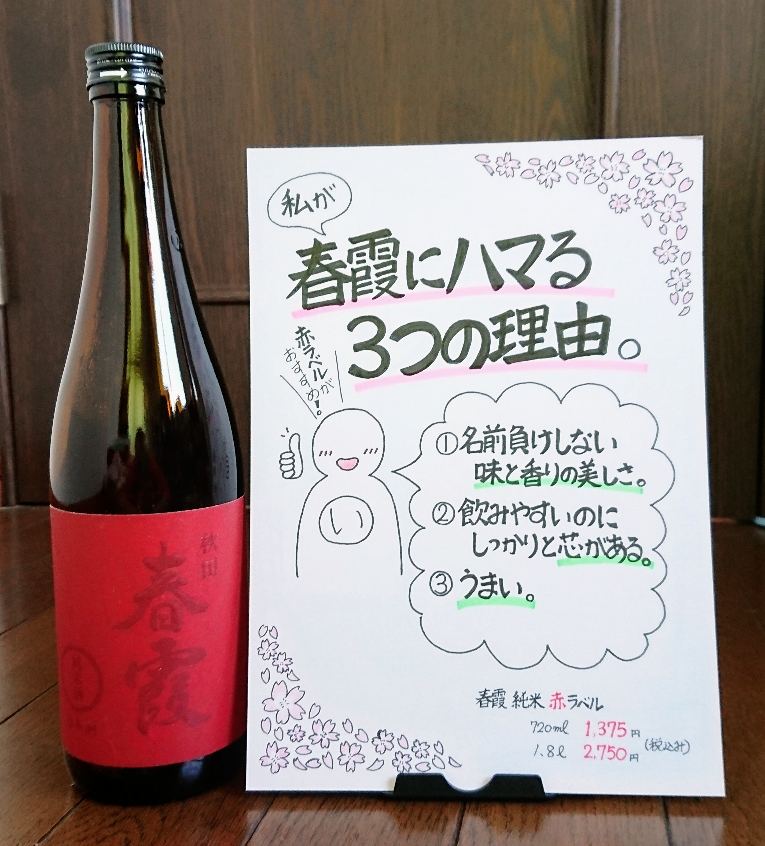 私が
春霞にハマる
3つの理由。
赤ラベルが
おすすめ!
①名前負けしない
味と香りの美しさ。
②飲みやすいのに
しっかりと芯がある。
③うまい。
い
春霞 純米 赤ラベル
720ml 1,375円
1.8ℓ 2,750円 (税込み)
秋田
春霞